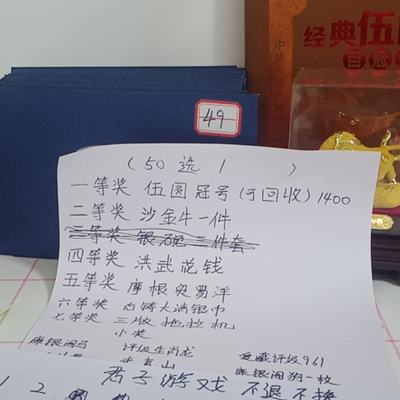 经典伍
首冠
49
(50选1)
一等奖 伍圆冠号(可回收)1400
二等奖 沙金牛一件
三等奖 银碗三件套
四等奖 洪武花钱
五等奖 摩根贸易洋
六等奖 白铸大清银币
七等奖 三版拖拉机
小奖
评级生肖龙
爱藏评级961
银阁狗一枚
君子游戏 不退不换
1 2